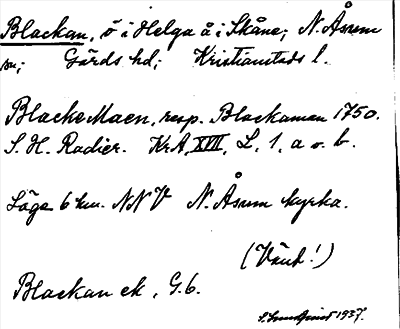 Blackan, ö i Helga å i Skåne; N. Åsum
sn; Gärds hd; Kristianstads l.
Blacke Maen, resp. Blackaman 1750.
S. H. Radier. KrA, XVII, L, 1, a o. b.
Läge 6 km. NNV N. Åsum kyrka.
(Vänd!)
Blackan ek, G.6.
1937.